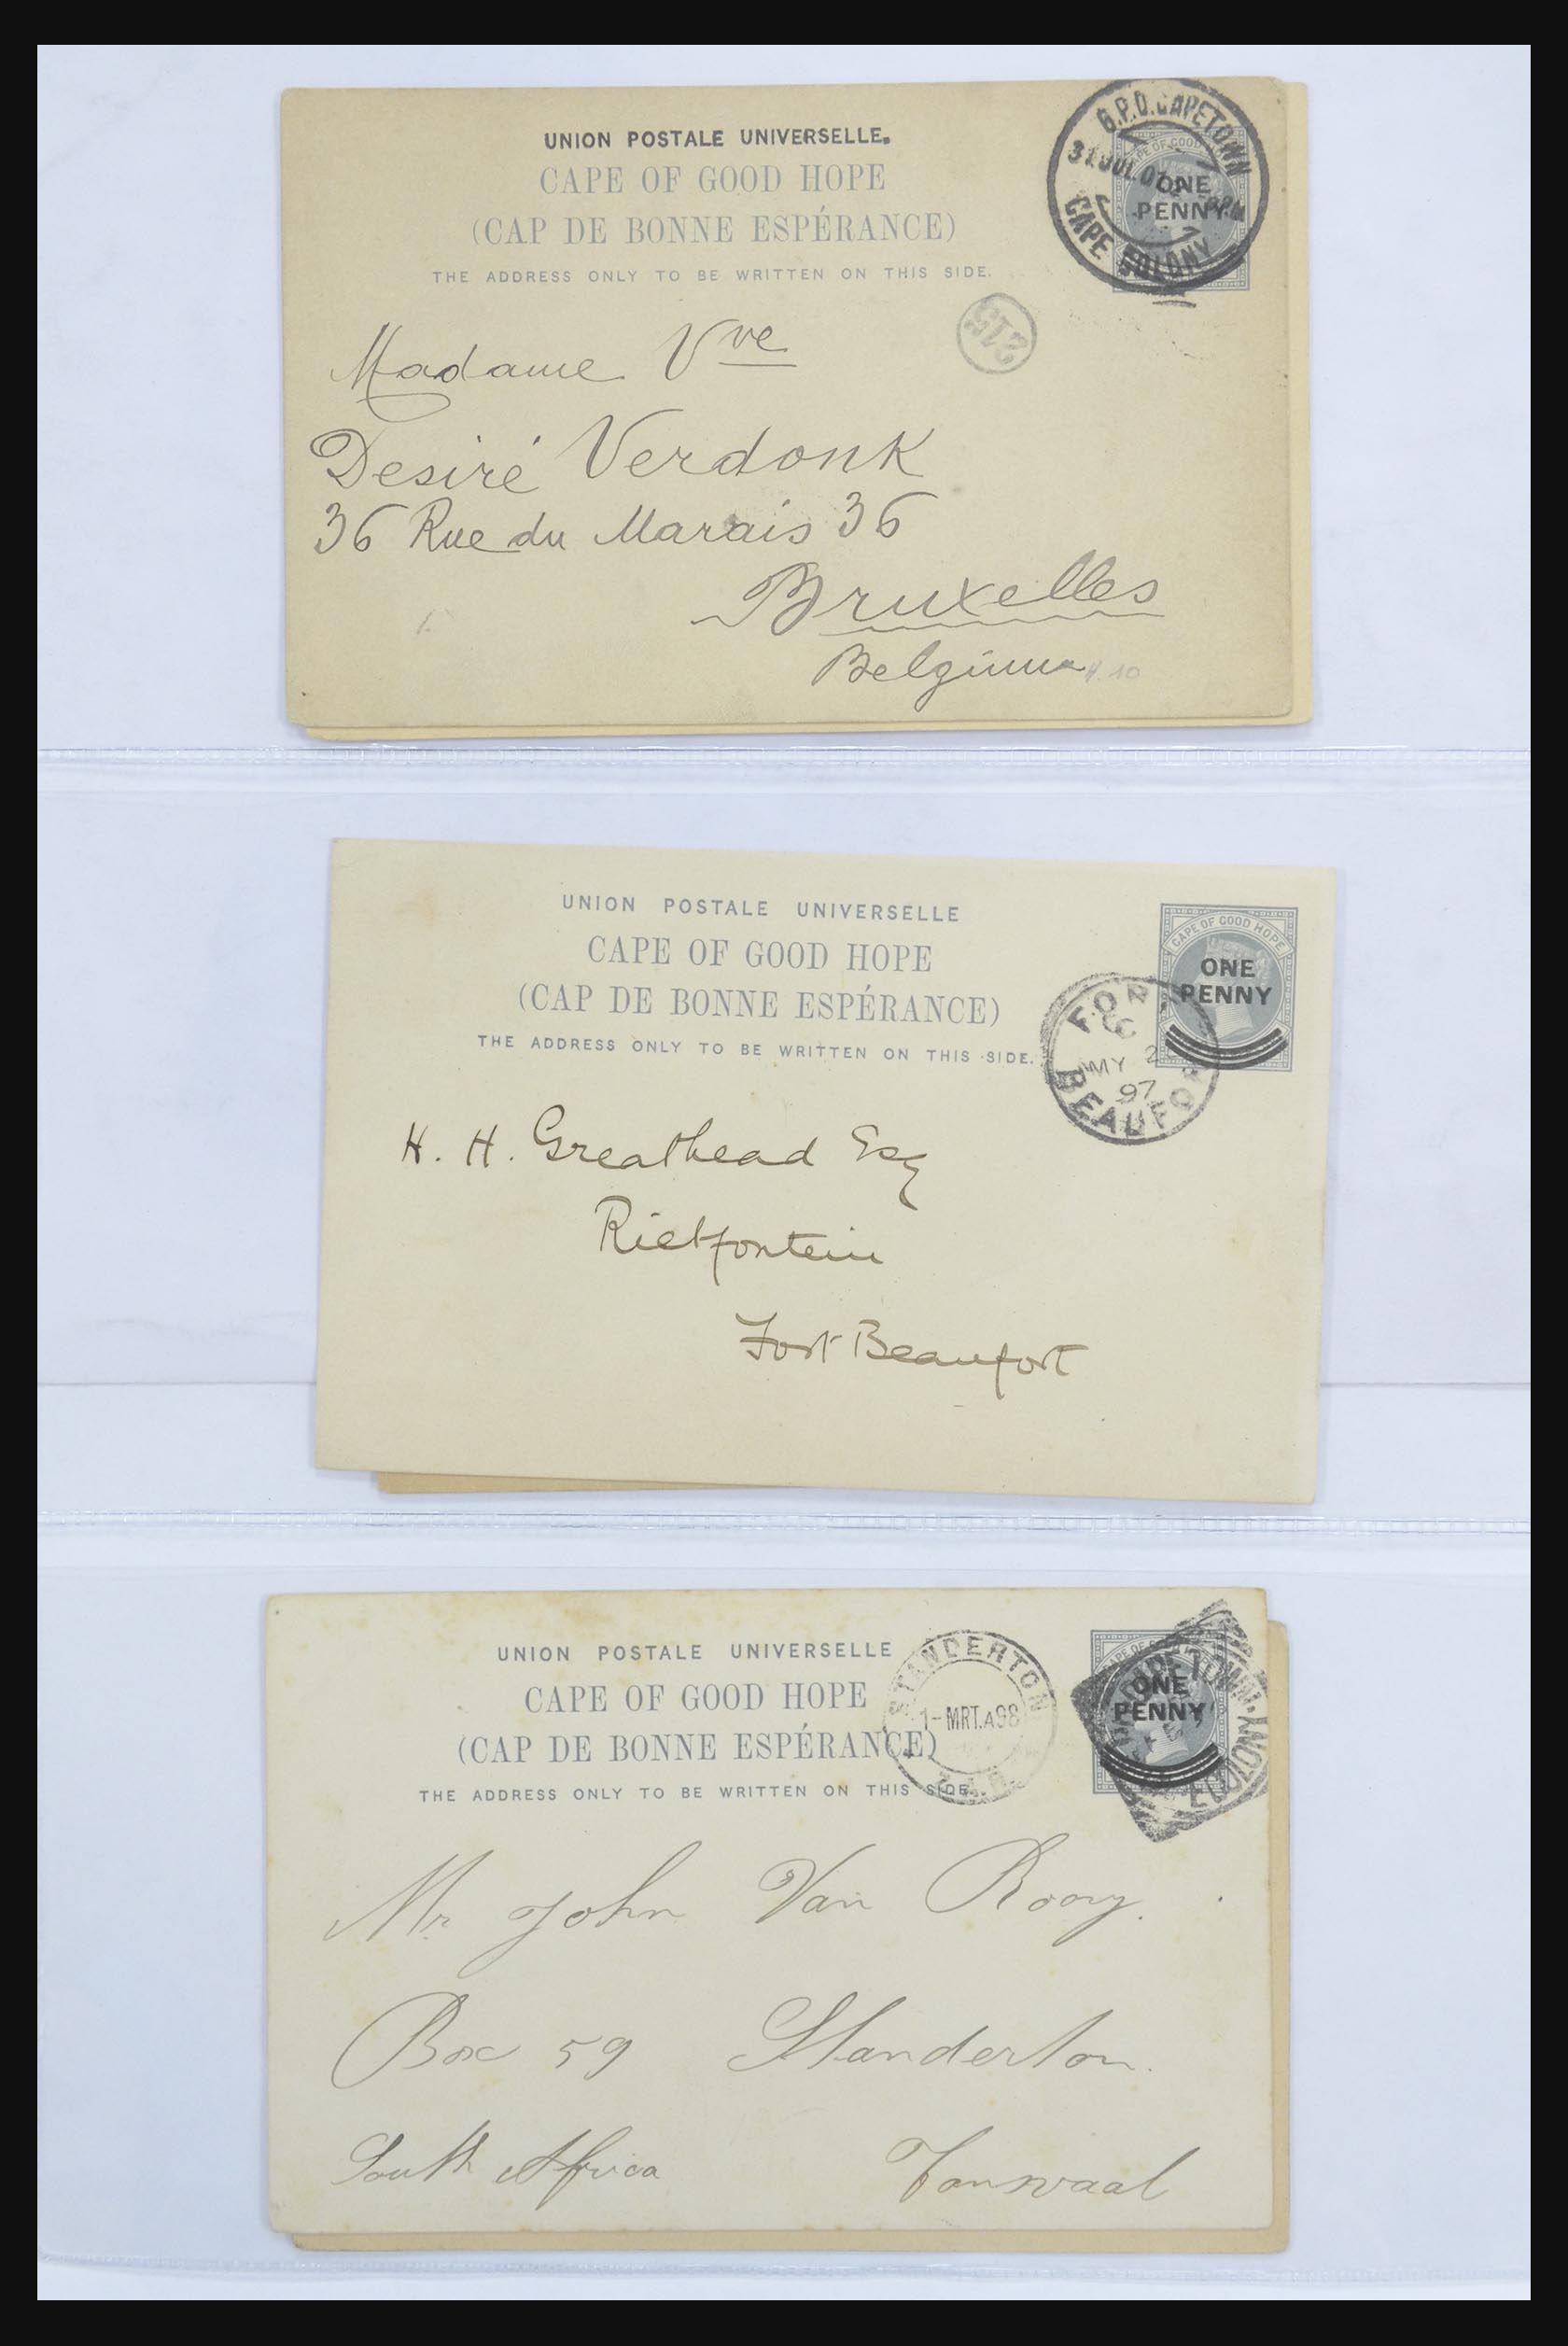 UNION POSTALE UNIVERSELLE.
CAPE OF GOOD HOPE
(CAP DE BONNE ESPÉRANCE)
THE ADDRESS ONLY TO BE WRITTEN ON THIS SIDE.
G.P.O. CAPETOWN
31 JUL 01
CAPE COLONY
ONE
PENNY.
215
Madame Vve
Desiré Verdonk
36 Rue du Marais 36
Bruxelles
Belgium
UNION POSTALE UNIVERSELLE
CAPE OF GOOD HOPE
(CAP DE BONNE ESPÉRANCE)
THE ADDRESS ONLY TO BE WRITTEN ON THIS SIDE.
CAPE OF GOOD HOPE
ONE
PENNY
FOR
C
MY 2
97
BEAUFOR
H. H. Greathead Esq
Rietfontein
Fort Beaufort
UNION POSTALE UNIVERSELLE
CAPE OF GOOD HOPE
(CAP DE BONNE ESPÉRANCE)
THE ADDRESS ONLY TO BE WRITTEN ON THIS SIDE.
STANDERTON
1-MRT.A98
Z.A.R.
ONE
PENNY
Mr John Van Rooy.
Box 59 Standerton.
South Africa Tansvaal